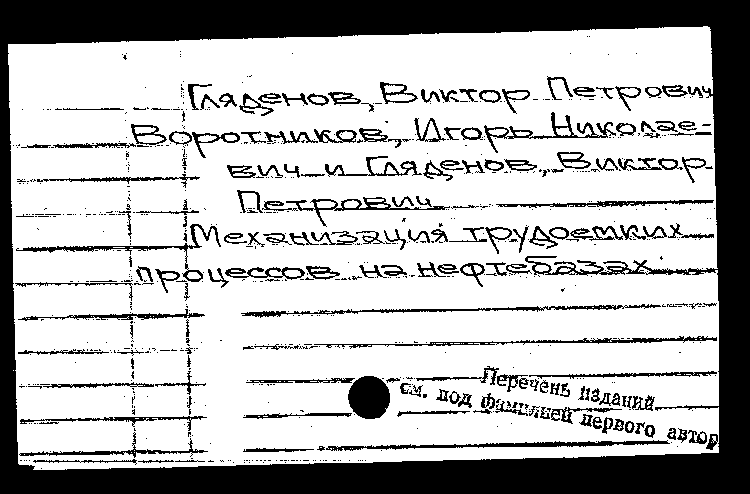 Гляденов, Виктор Петрович
Воротников, Игорь Николае-
вич и Гляденов, Виктор
Петрович
Механизация трудоемких
процессов на нефтебазах.
Перечень изданий
см. под фамилией первого автор